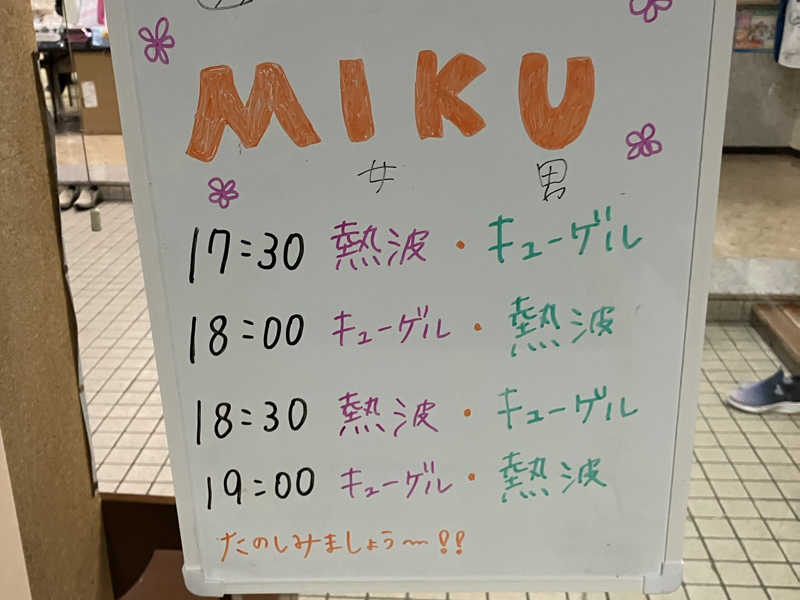 MIKU
女 男
17:30 熱波・キューゲル
18:00 キューゲル・熱波
18:30 熱波・キューゲル
19:00 キューゲル・熱波
たのしみましょう〜!!